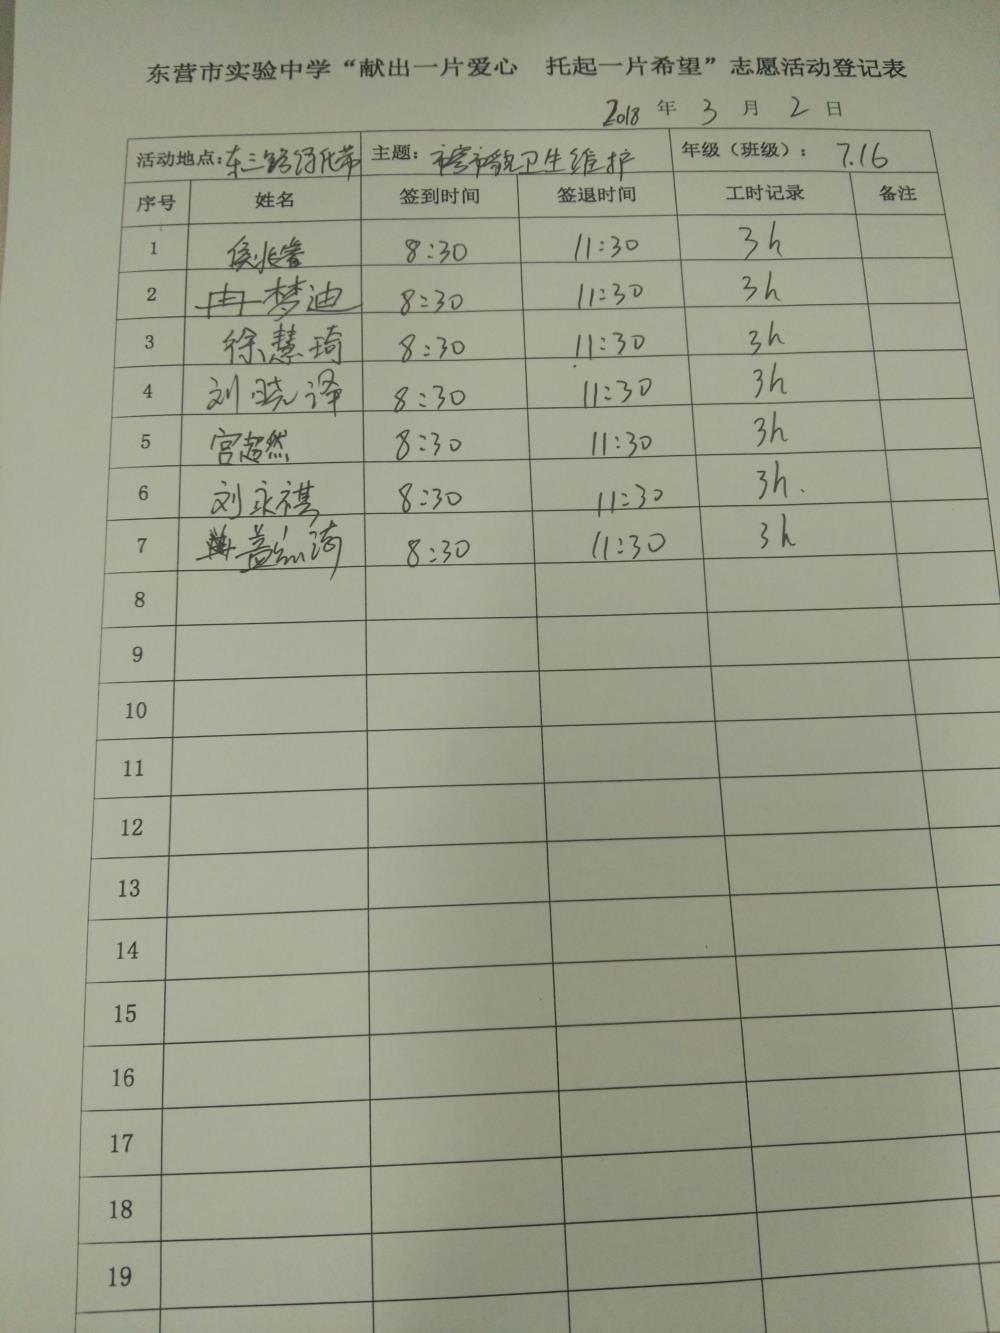 东营市实验中学“献出一片爱心 托起一片希望”志愿活动登记表
2018 年 3 月 2 日
活动地点：东三路绿化带 主题：市容市貌卫生维护 年级（班级）：7.16
序号 姓名 签到时间 签退时间 工时记录 备注
1 8:30 11:30 3h
2 冉梦迪 8:30 11:30 3h
3 徐慧琦 8:30 11:30 3h
4 刘晓译 8:30 11:30 3h
5 宫超然 8:30 11:30 3h
6 刘永祺 8:30 11:30 3h.
7 8:30 11:30 3h
8
9
10
11
12
13
14
15
16
17
18
19